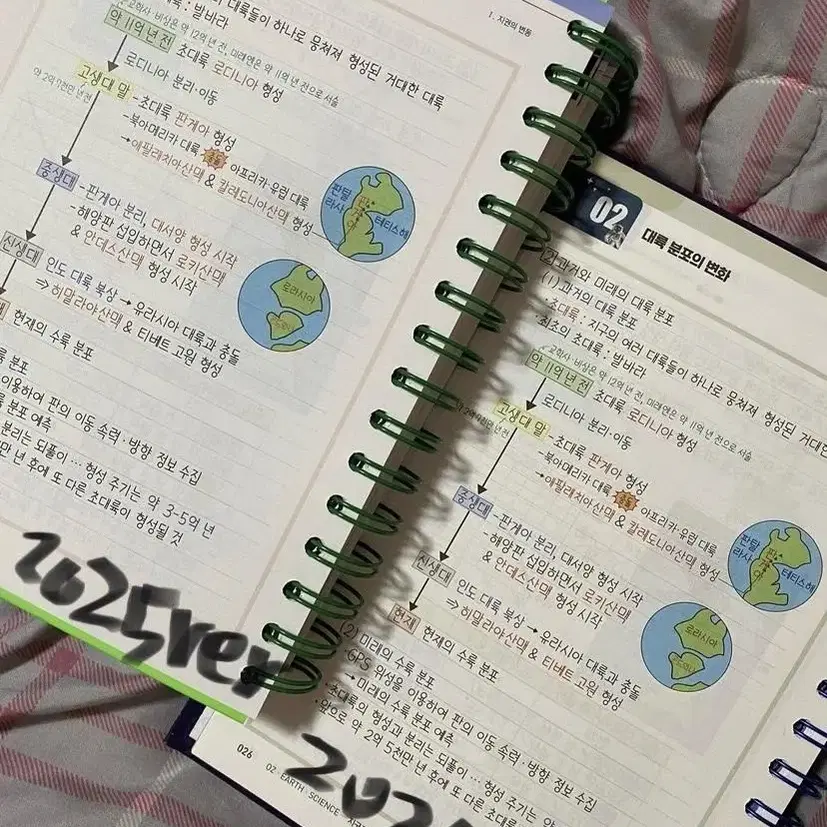 1. 지권의 변동
대륙들이 하나로 뭉쳐져 형성된 거대한 대륙
초대륙 : 발바라
교학사·비상은 약 12억 년 전, 미래엔은 약 11억 년 전으로 서술
약 11억 년 전 초대륙 로디니아 형성
로디니아 분리·이동
약 2억 7천만 년 전
고생대 말 - 초대륙 판게아 형성
- 북아메리카 대륙 충돌 아프리카·유럽 대륙
→ 애팔래치아산맥 & 칼레도니아산맥 형성
중생대 - 판게아 분리, 대서양 형성 시작
- 해양판 섭입하면서 로키산맥
& 안데스산맥 형성 시작
신생대 인도 대륙 북상 → 유라시아 대륙과 충돌
⇒ 히말라야산맥 & 티베트 고원 형성
현재의 수륙 분포
판탈
라사
판게아
테티스해
로라시아
곤드와나
륙 분포
이용하여 판의 이동 속력·방향 정보 수집
륙 분포 예측
분리는 되풀이 … 형성 주기는 약 3-5억 년
만 년 후에 또 다른 초대륙이 형성될 것
2025ver
02 대륙 분포의 변화
[2] 과거와 미래의 대륙 분포
(1) 과거의 대륙 분포
·초대륙 : 지구의 여러 대륙들이 하나로 뭉쳐져 형성된 거대한
·최초의 초대륙 : 발바라
교학사·비상은 약 12억 년 전, 미래엔은 약 11억 년 전으로 서술
약 11억 년 전 초대륙 로디니아 형성
로디니아 분리·이동
2억 7천만 년 전
고생대 말 - 초대륙 판게아 형성
- 북아메리카 대륙 충돌 아프리카·유럽 대륙
→ 애팔래치아산맥 & 칼레도니아산맥 형성
중생대 - 판게아 분리, 대서양 형성 시작
- 해양판 섭입하면서 로키산맥
& 안데스산맥 형성 시작
신생대 인도 대륙 북상 → 유라시아 대륙과 충돌
⇒ 히말라야산맥 & 티베트 고원 형성
현재 현재의 수륙 분포
판탈
라사
판게아
테티스해
로라시아
곤드와나
(2) 미래의 수륙 분포
·GPS 위성을 이용하여 판의 이동 속력·방향 정보 수집
→ 미래의 수륙 분포 예측
·초대륙의 형성과 분리는 되풀이 … 형성 주기는 약
·앞으로 약 2억 5천만 년 후에 또 다른 초대륙
026
02 · EARTH · SCIENCE
202